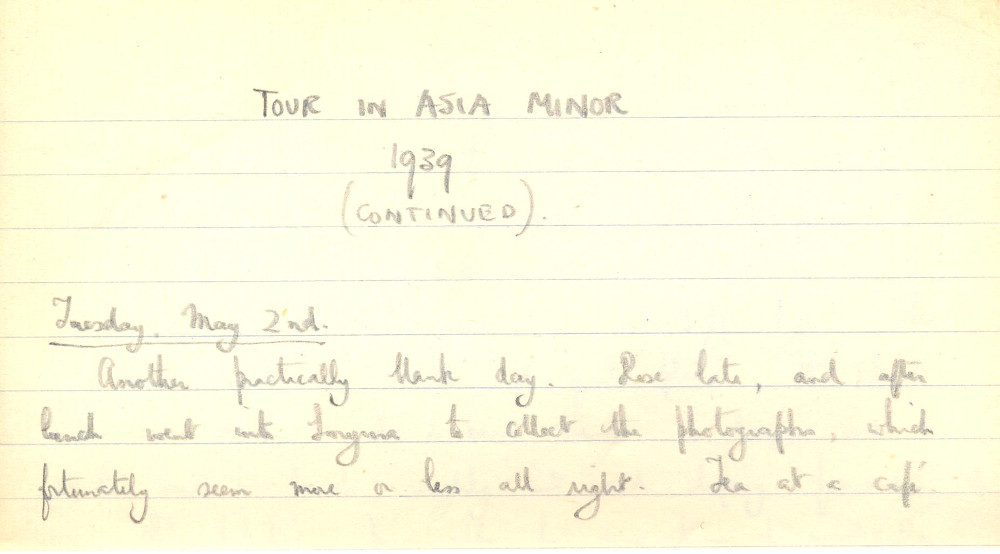 TOUR IN ASIA MINOR
1939
(CONTINUED).
Tuesday. May 2nd.
Another practically blank day. Rose late, and after
lunch went into Smyrna to collect the photographs, which
fortunately seem more or less all right. Tea at a café.